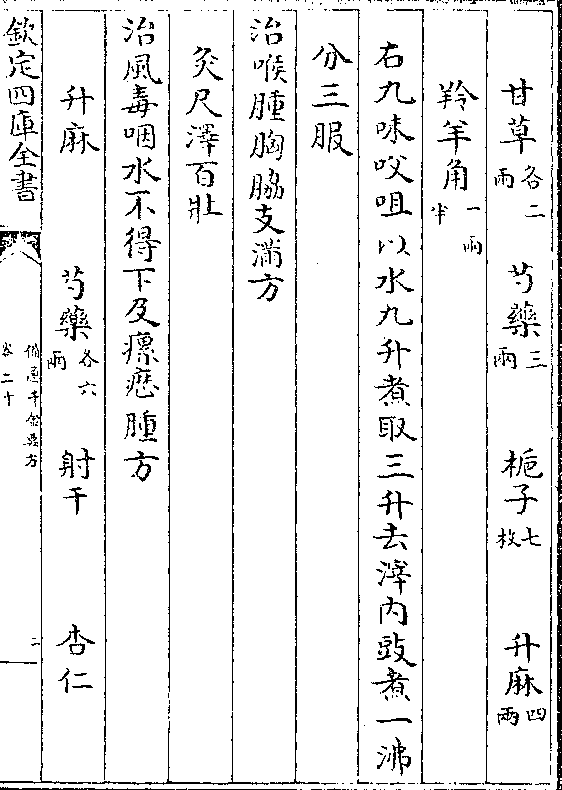 甘草各二兩 芍藥三兩 梔子七枚 升麻四兩
羚羊角一兩半
右九味㕮咀以水九升煮取三升去滓内豉煮一沸
分三服
治喉腫胸脇支滿方
灸尺澤百壯
治風毒咽水不得下及瘰癧腫方
升麻 芍藥各六兩 射干 杏仁
欽定四庫全書
備急千金要方
卷二十
二